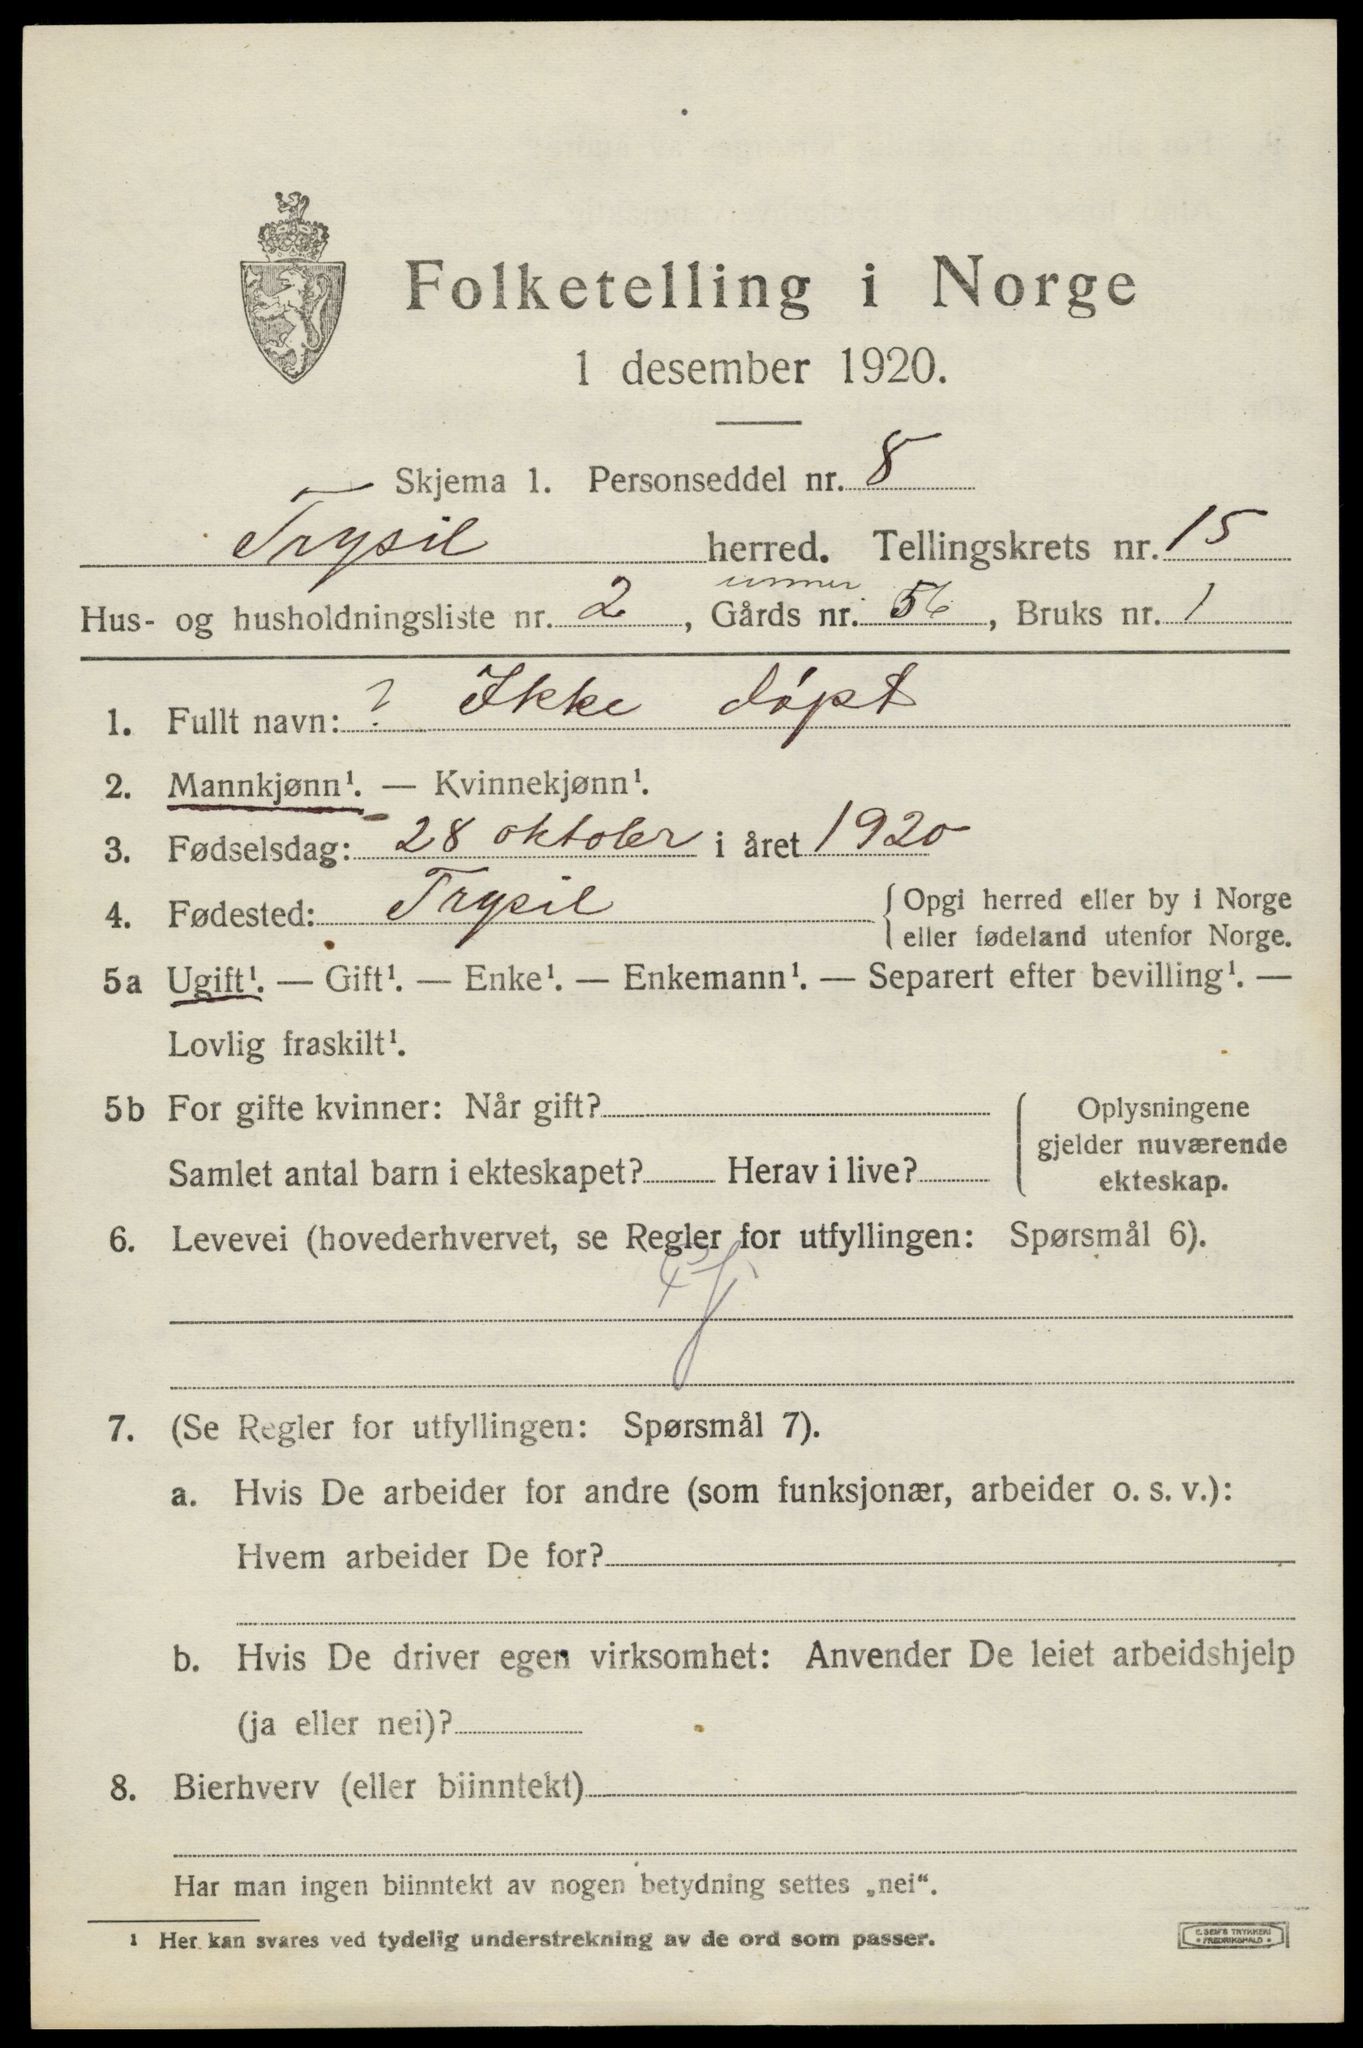 Folketelling i Norge
1 desember 1920.
Skjema 1. Personseddel nr. 8
Trysil herred. Tellingskrets nr. 15
Hus- og husholdningsliste nr. 2, Gårds nr. 56, Bruks nr. 1
1. Fullt navn: ? Ikke döpt
2. Mannkjønn¹. — Kvinnekjønn¹.
3. Fødselsdag: 28 oktober i året 1920
4. Fødested: Trysil {Opgi herred eller by i Norge
eller fødeland utenfor Norge.
5a Ugift¹. — Gift¹. — Enke¹. — Enkemann¹. — Separert efter bevilling¹. —
Lovlig fraskilt¹.
5b For gifte kvinner: Når gift?
Samlet antal barn i ekteskapet? Herav i live?
Oplysningene
gjelder nuværende
ekteskap.
6. Levevei (hovederhvervet, se Regler for utfyllingen: Spørsmål 6).
7. (Se Regler for utfyllingen: Spørsmål 7).
a. Hvis De arbeider for andre (som funksjonær, arbeider o. s. v.):
Hvem arbeider De for?
b. Hvis De driver egen virksomhet: Anvender De leiet arbeidshjelp
(ja eller nei)?
8. Bierhverv (eller biinntekt)
Har man ingen biinntekt av nogen betydning settes „nei“.
¹ Her kan svares ved tydelig understrekning av de ord som passer.
E. SEM'S TRYKKERI
FREDRIKSHALD